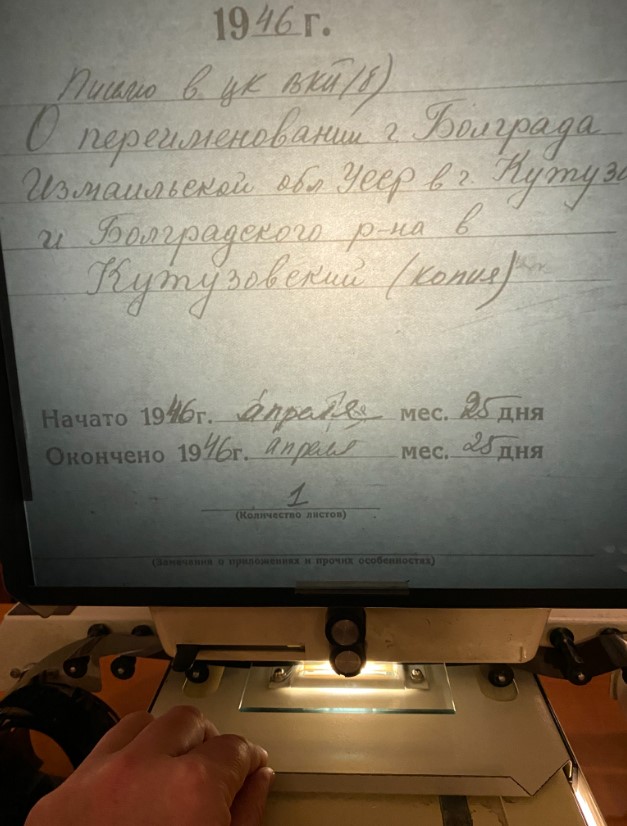 1946 г.
Письмо в ЦК ВКП(б)
О переименовании г. Болграда
Измаильской обл УССР в г. Кутузо
и Болградского р-на в
Кутузовский (копия)
Начато 1946г. апреля мес. 25 дня
Окончено 1946г. апреля мес. 25 дня
1
(Количество листов)
(Замечания о приложениях и прочих особенностях)